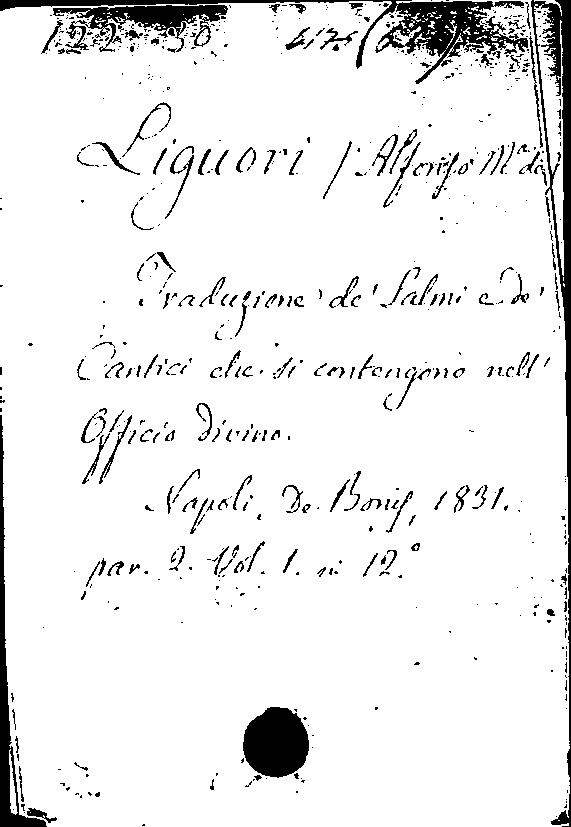 122. 30.
Liguori / Alfonso Mª de /
Traduzione de' Salmi e de'
Cantici che si contengono nell'
Officio divino.
Napoli, De Bonis, 1831.
par. 2. Vol. 1. in 12.°